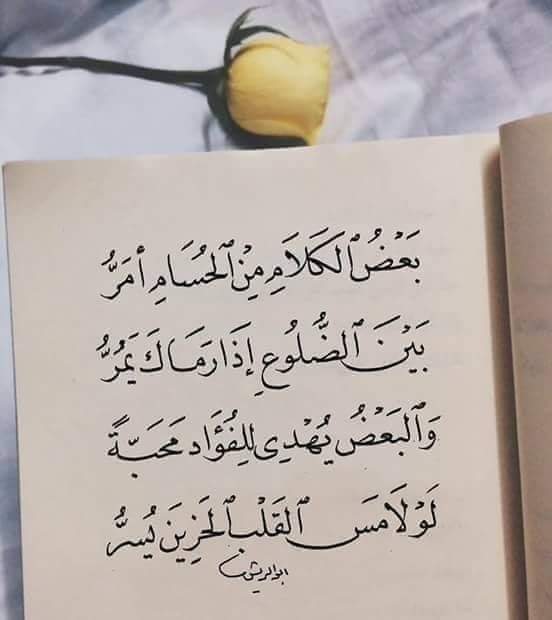 بَعْضُ ٱلكَلَامِ مِنْ ٱلحُسَامِ أمَرُّ
بَيْنَ ٱلضُّلُوعِ إذَا رَمَاكَ يَمُرُّ
وَٱلبَعْضُ يُهْدِي لِلفُؤَادِ مَحَبَّةً
لَوْ لَامَسَ ٱلقَلْبَ ٱلحَزِينَ يُسَرُّ
ابو الريش